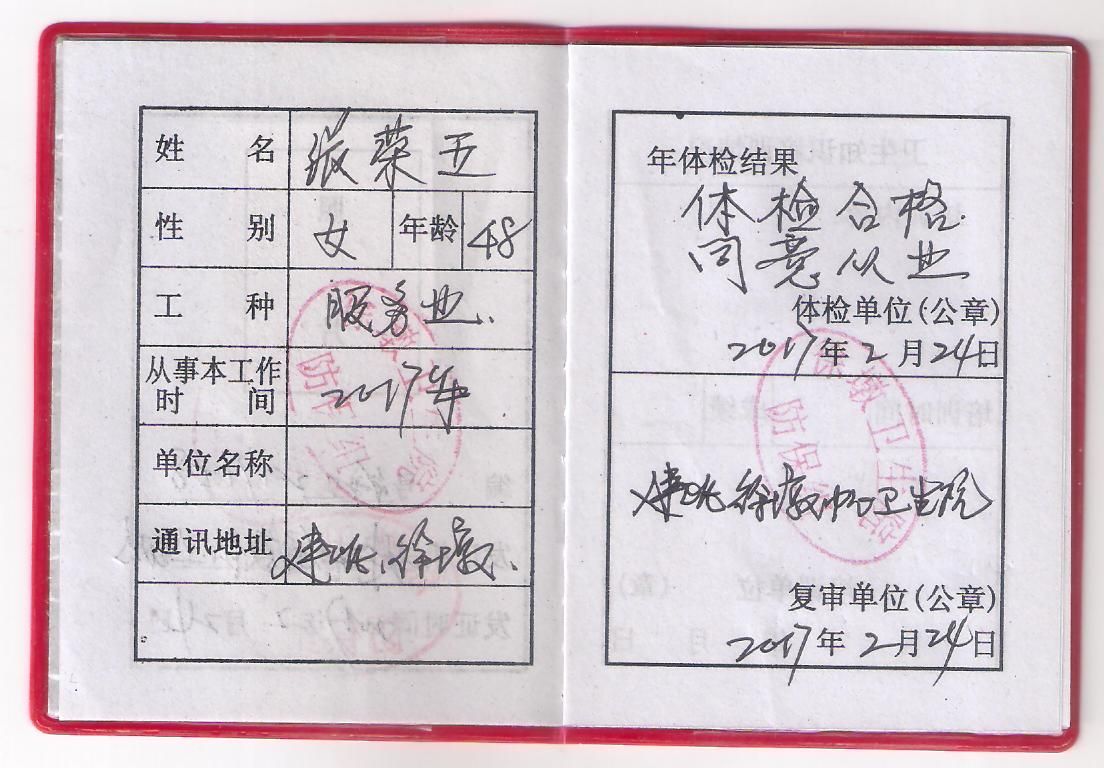 姓 名 张荣玉
性 别 女 年龄 48
工 种 服务业.
从事本工作
时 间 2017年
单位名称
通讯地址 建瓯.徐墩.
年体检结果
体检合格.
同意从业
体检单位(公章)
2017年2月24日
徐墩卫生院
防保组
建瓯徐墩中心卫生院
复审单位(公章)
2017年2月24日